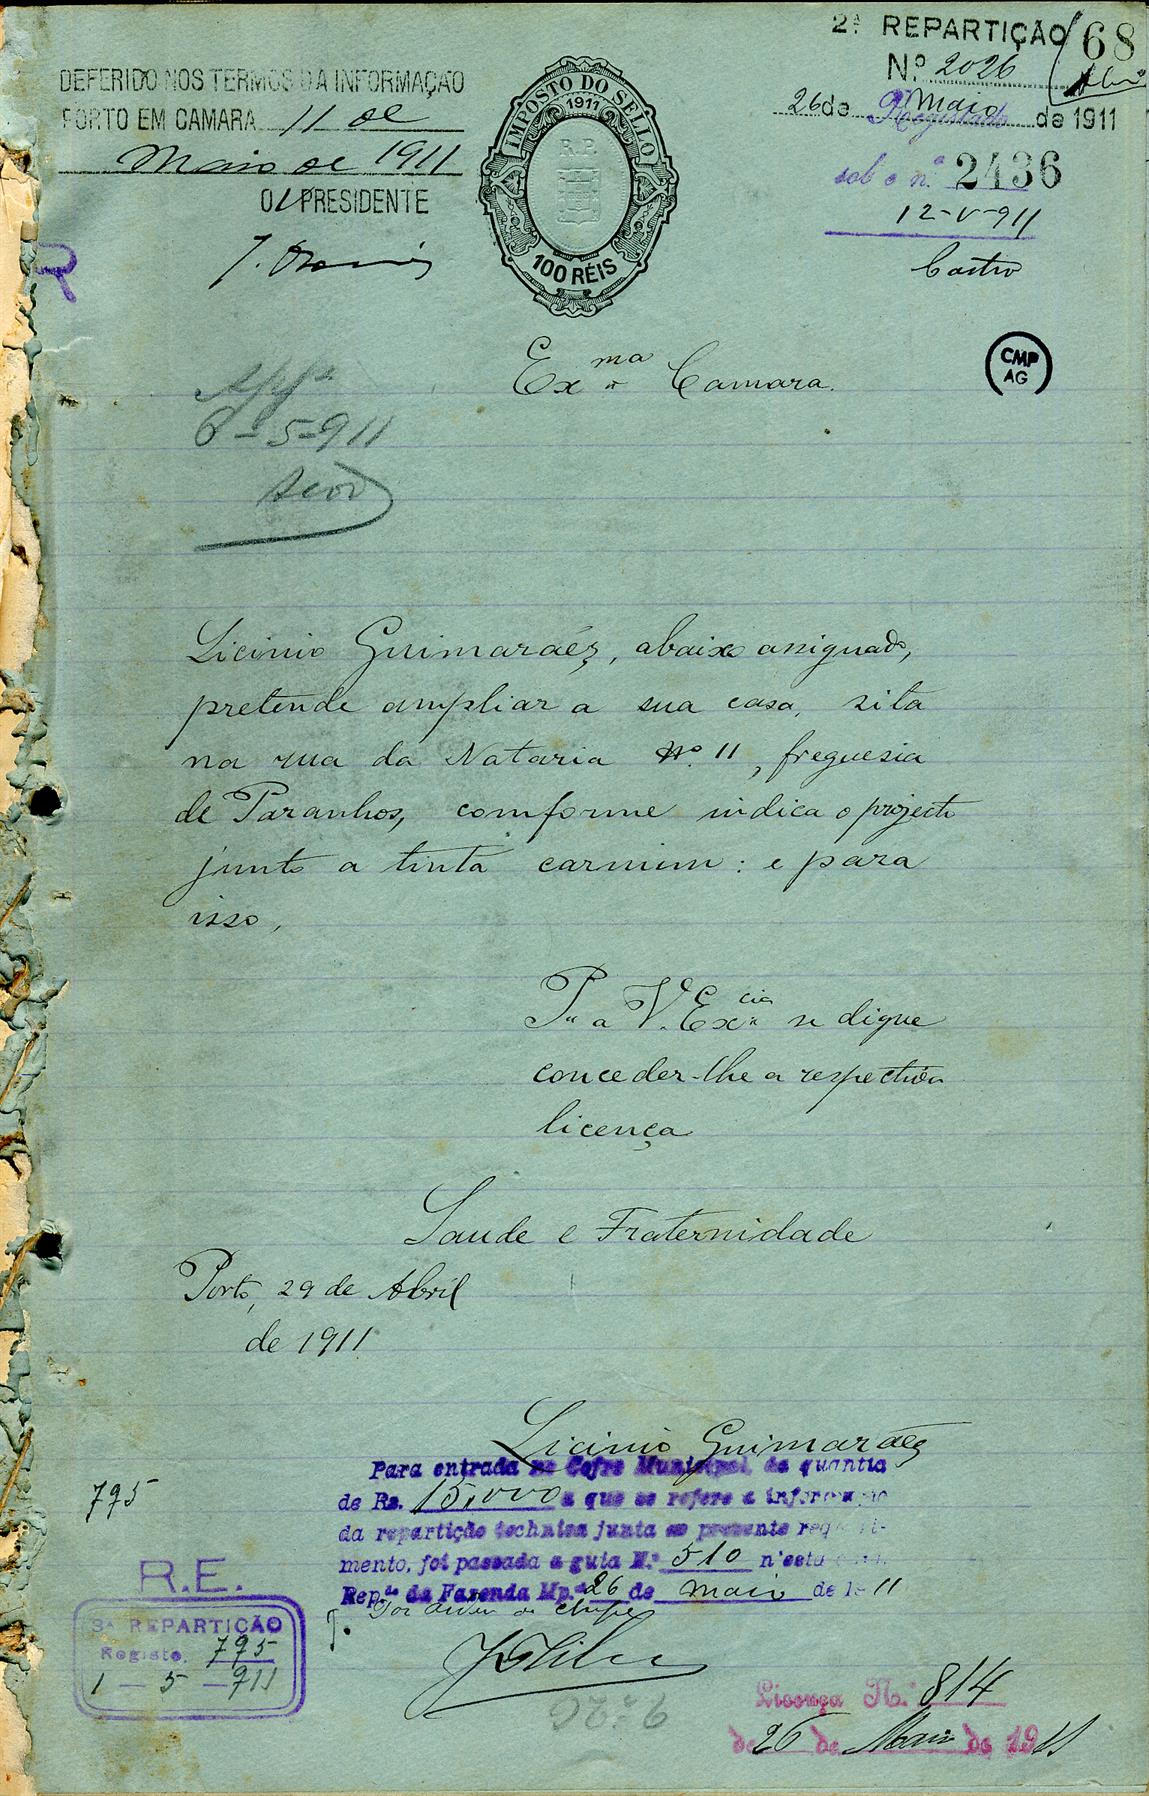 2ª REPARTIÇÃO
68
Nº 2026
26 de Maio de 1911
Registado
sob o nº 2436
12-V-911
Castro
DEFERIDO NOS TERMOS DA INFORMAÇÃO
PORTO EM CAMARA 11 de
Maio de 1911
O PRESIDENTE
R
IMPOSTO DO SELLO
1911
R.P.
100 RÉIS
CMP
AG
Exma Camara.
6-5-911
Licinio Guimarães, abaixo assignado,
pretende ampliar a sua casa, sita
na rua da Nataria Nº 11, freguesia
de Paranhos, comforme indica o projecto
junto a tinta carmim: e para
isso,
P. a V. Excia se digne
conceder-lhe a respectiva
licença
Saude e Fraternidade
Porto, 29 de Abril
de 1911
Licinio Guimarães
795
Para entrada no Cofre Municipal da quantia
de Rs. 15,000 a que se refere a informação
da repartição technica junta ao presente requeri-
mento, foi passada a guia N.º 510 n'esta
Rep.ão da Fazenda Mp.al 26 de Maio de 1911
R.E.
3ª REPARTIÇÃO
Registo. 795
1-5-911
Licença N.º 814
de 26 de Maio de 1911